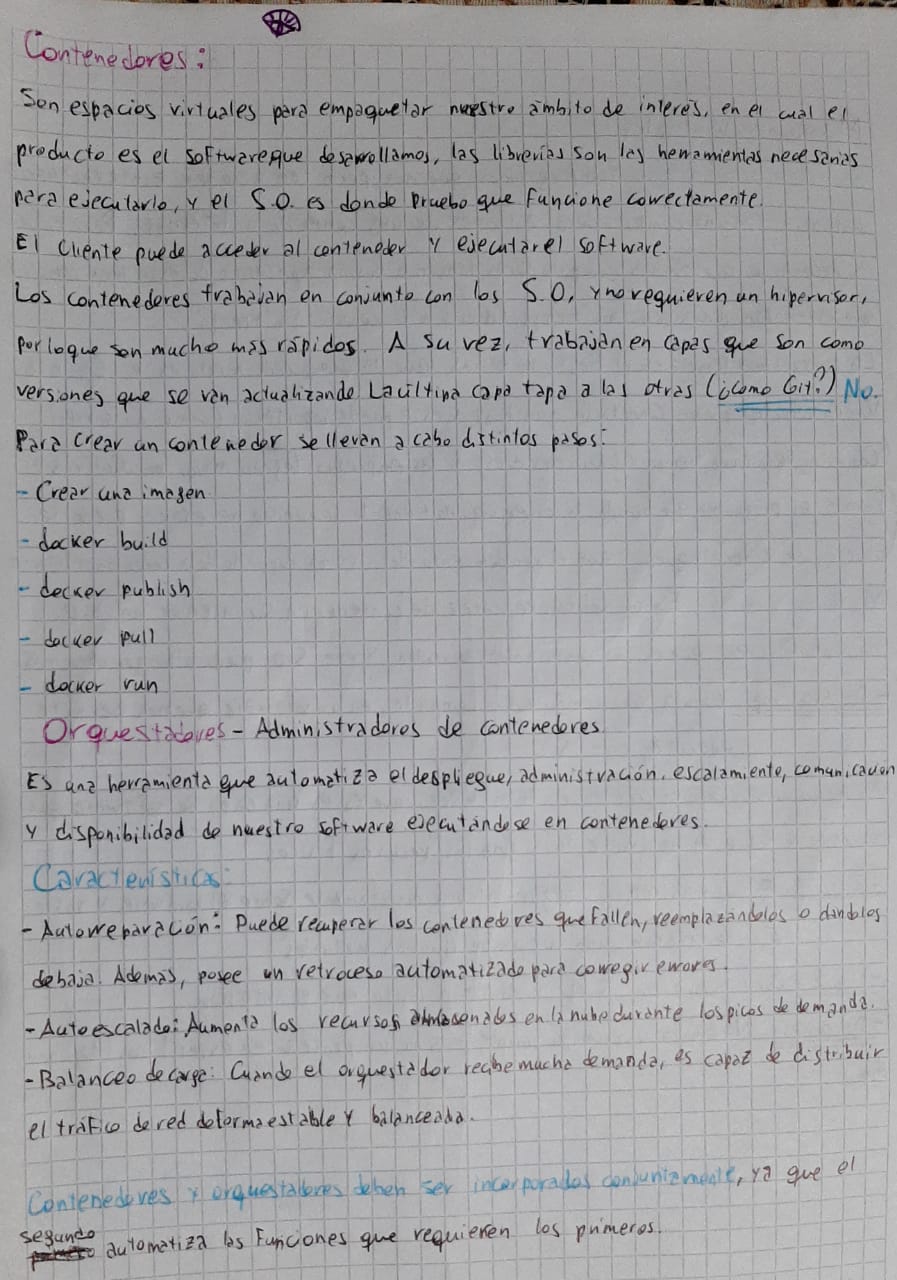 Contenedores:
Son espacios virtuales para empaquetar nuestro ámbito de interés, en el cual el
producto es el software que desarrollamos, las librerías son las herramientas necesarias
para ejecutarlo, y el S.O. es donde pruebo que funcione correctamente.
El cliente puede acceder al contenedor y ejecutar el software.
Los contenedores trabajan en conjunto con los S.O, y no requieren un hipervisor,
por lo que son mucho más rápidos. A su vez, trabajan en capas que son como
versiones que se van actualizando La última capa tapa a las otras (¿Como Git?) No.
Para crear un contenedor se llevan a cabo distintos pasos:
- Crear una imagen
- docker build
- docker publish
- docker pull
- docker run
Orquestadores - Administradores de contenedores
Es una herramienta que automatiza el despliegue, administración, escalamiento, comunicación
y disponibilidad de nuestro software ejecutándose en contenedores.
Características:
- Autorreparación: Puede recuperar los contenedores que fallen, reemplazandolos o dandolos
de baja. Además, posee un retroceso automatizado para corregir errores.
- Autoescalado: Aumenta los recursos almacenados en la nube durante los picos de demanda.
- Balanceo de carga: Cuando el orquestador recibe mucha demanda, es capaz de distribuir
el tráfico de red de forma estable y balanceada.
Contenedores y orquestadores deben ser incorporados conjuntamente, ya que el
segundo automatiza las funciones que requieren los primeros.